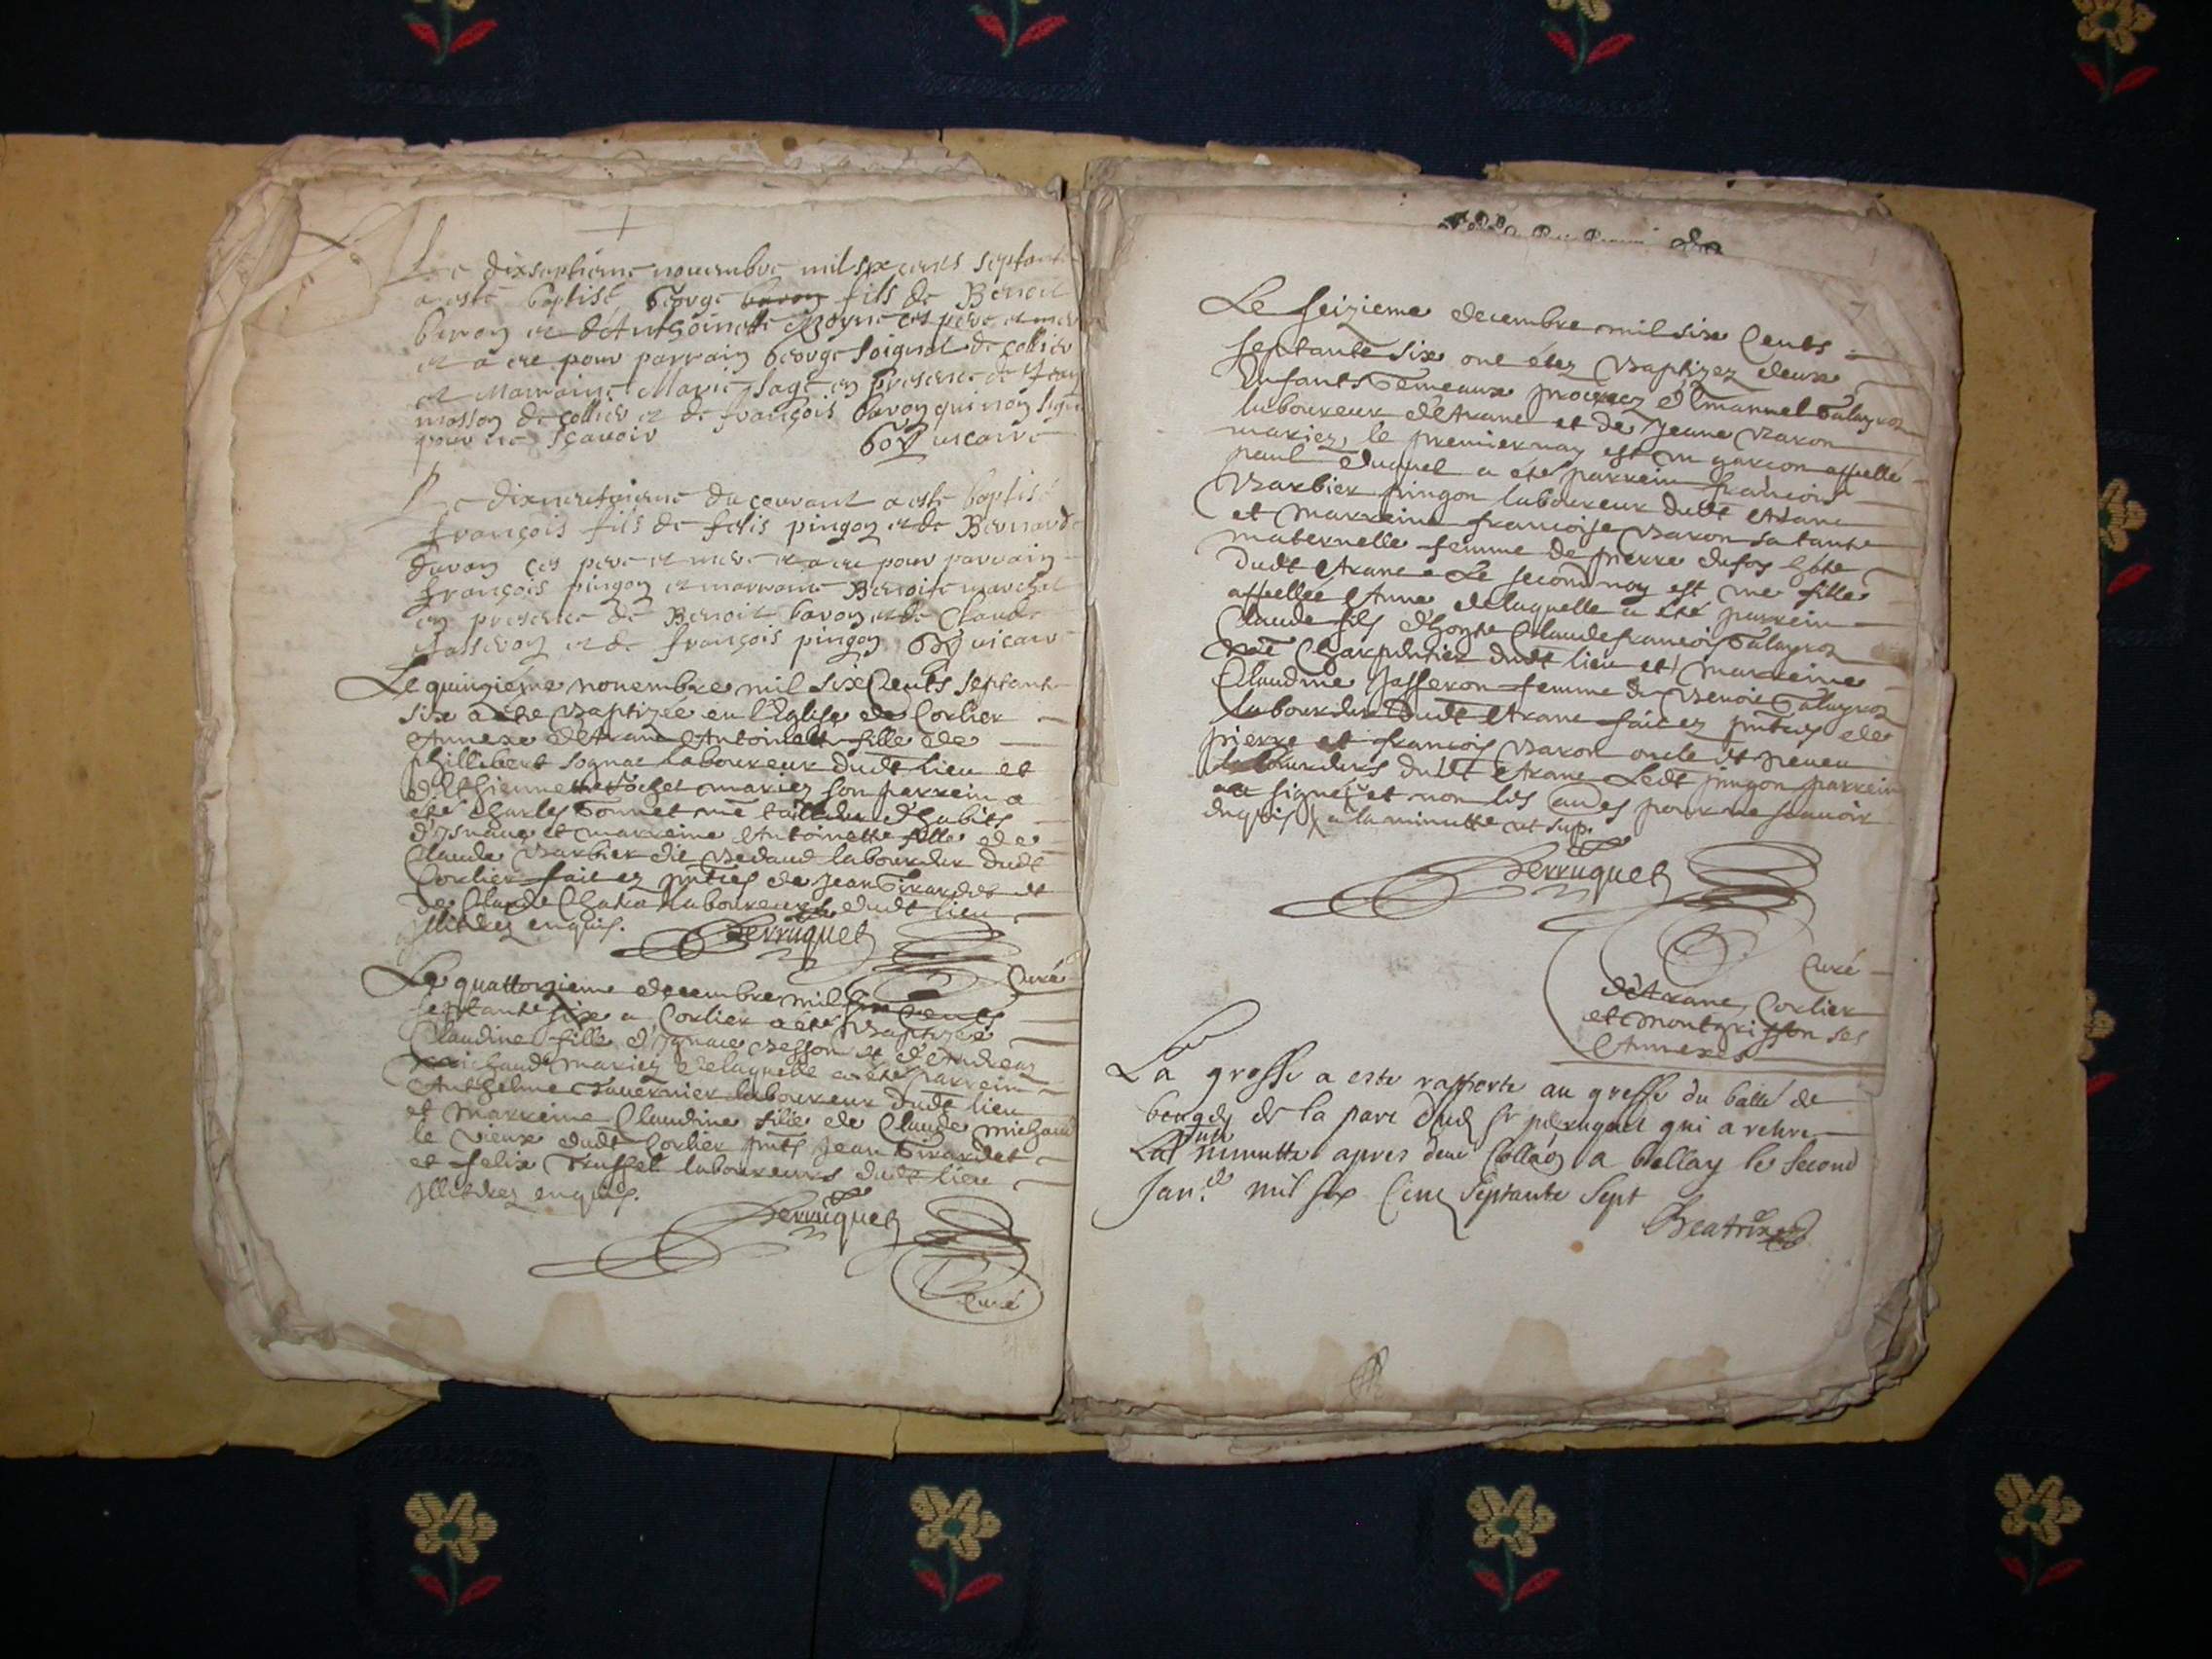 Le dixseptieme nouembre mil six cens septante
a esté baptisé George baron fils de Benoit
baron et d'Anthoinette ces pere et mere
et a eu pour parrain George soignat de collier
et Marraine Marie sage en presence de Jean
masson de collier et de françois baron qui non signe
pour ne sçauoir Goy uicaire
Le du courant a esté baptisé
françois fils de felis pingon et de Bernarde
baron ces pere et mere et a eu pour parrain
françois pingon et marraine Benoite marchat
en presence de Benoit baron et de Claude
Jasseron et de françois pingon Goy uicaire
Le quinzieme nouembre mil six Cents septante
six a été Baptizée en l'Eglise de Corlier
Annexe d'Arane Antoinette fille de
phillibert sognat laboureur dudt lieu et
d'Ethiennette mariez son parrein a
été Charles Bonnet me tailleur d'habits
d'Isnaue et marreine Antoinette fille de
Claude Barbier dit Bedaud laboureur dudt
Corlier faict ez pntces de Jean Girardet et
de Claude laboureurs dudt lieu
jllitérez enquis.
Perruquet
Curé
Le quattorzieme decembre mil six Cents
septante six a Corlier a été Baptizée
Claudine fille d'Ignace Besson et d'Andreaz
michaud mariez delaquelle a été parrein
Anthelme Tauernier laboureur dudt lieu
et Marreine Claudine fille de Claude michaud
le Vieux dudt Corlier pnts Jean Girardet
et felix Truffet laboureurs dudt lieu
jllitérez enquis.
Perruquet
Curé
Le seizieme decembre mil six Cents
septante six ont étez Baptizez deux
Enfants Gemeaux procreez d'Emanuel Galayroz
laboureur d'Arane et de Jeane Baron
mariez, le premier nay est un garcon appellé
paul duquel a été parrein francois
Barbier pingon laboureur dudt Arane
et marreine francoise Baron sa tante
maternelle femme de pierre dufoy hôte
dudt Arane Le second nay est une fille
appellée Anne delaquelle a été parrein
Claude fils d'honte Claude francois Galayroz
me Charpentier dudt lieu et marreine
Claudine Jasseron femme de Benoit Galayroz
laboureur dudt Arane faict ez pntces de
pierre et francois Baron oncle et neueu
laboureurs dudt Arane Ledt pingon parrein
a signé et non les autres pour ne scauoir
enquis a la minutte ut sup.
Perruquet
Curé
d'Arane, Corlier
et Montgriffon ses
Annexes
La grosse a este rapporte au greffe du balle de
beugey de la part dud sr peruquet qui a retire
la minutte apres deue Collaon a bellay le second
Jan.er mil six Cent septante sept
Beatrix